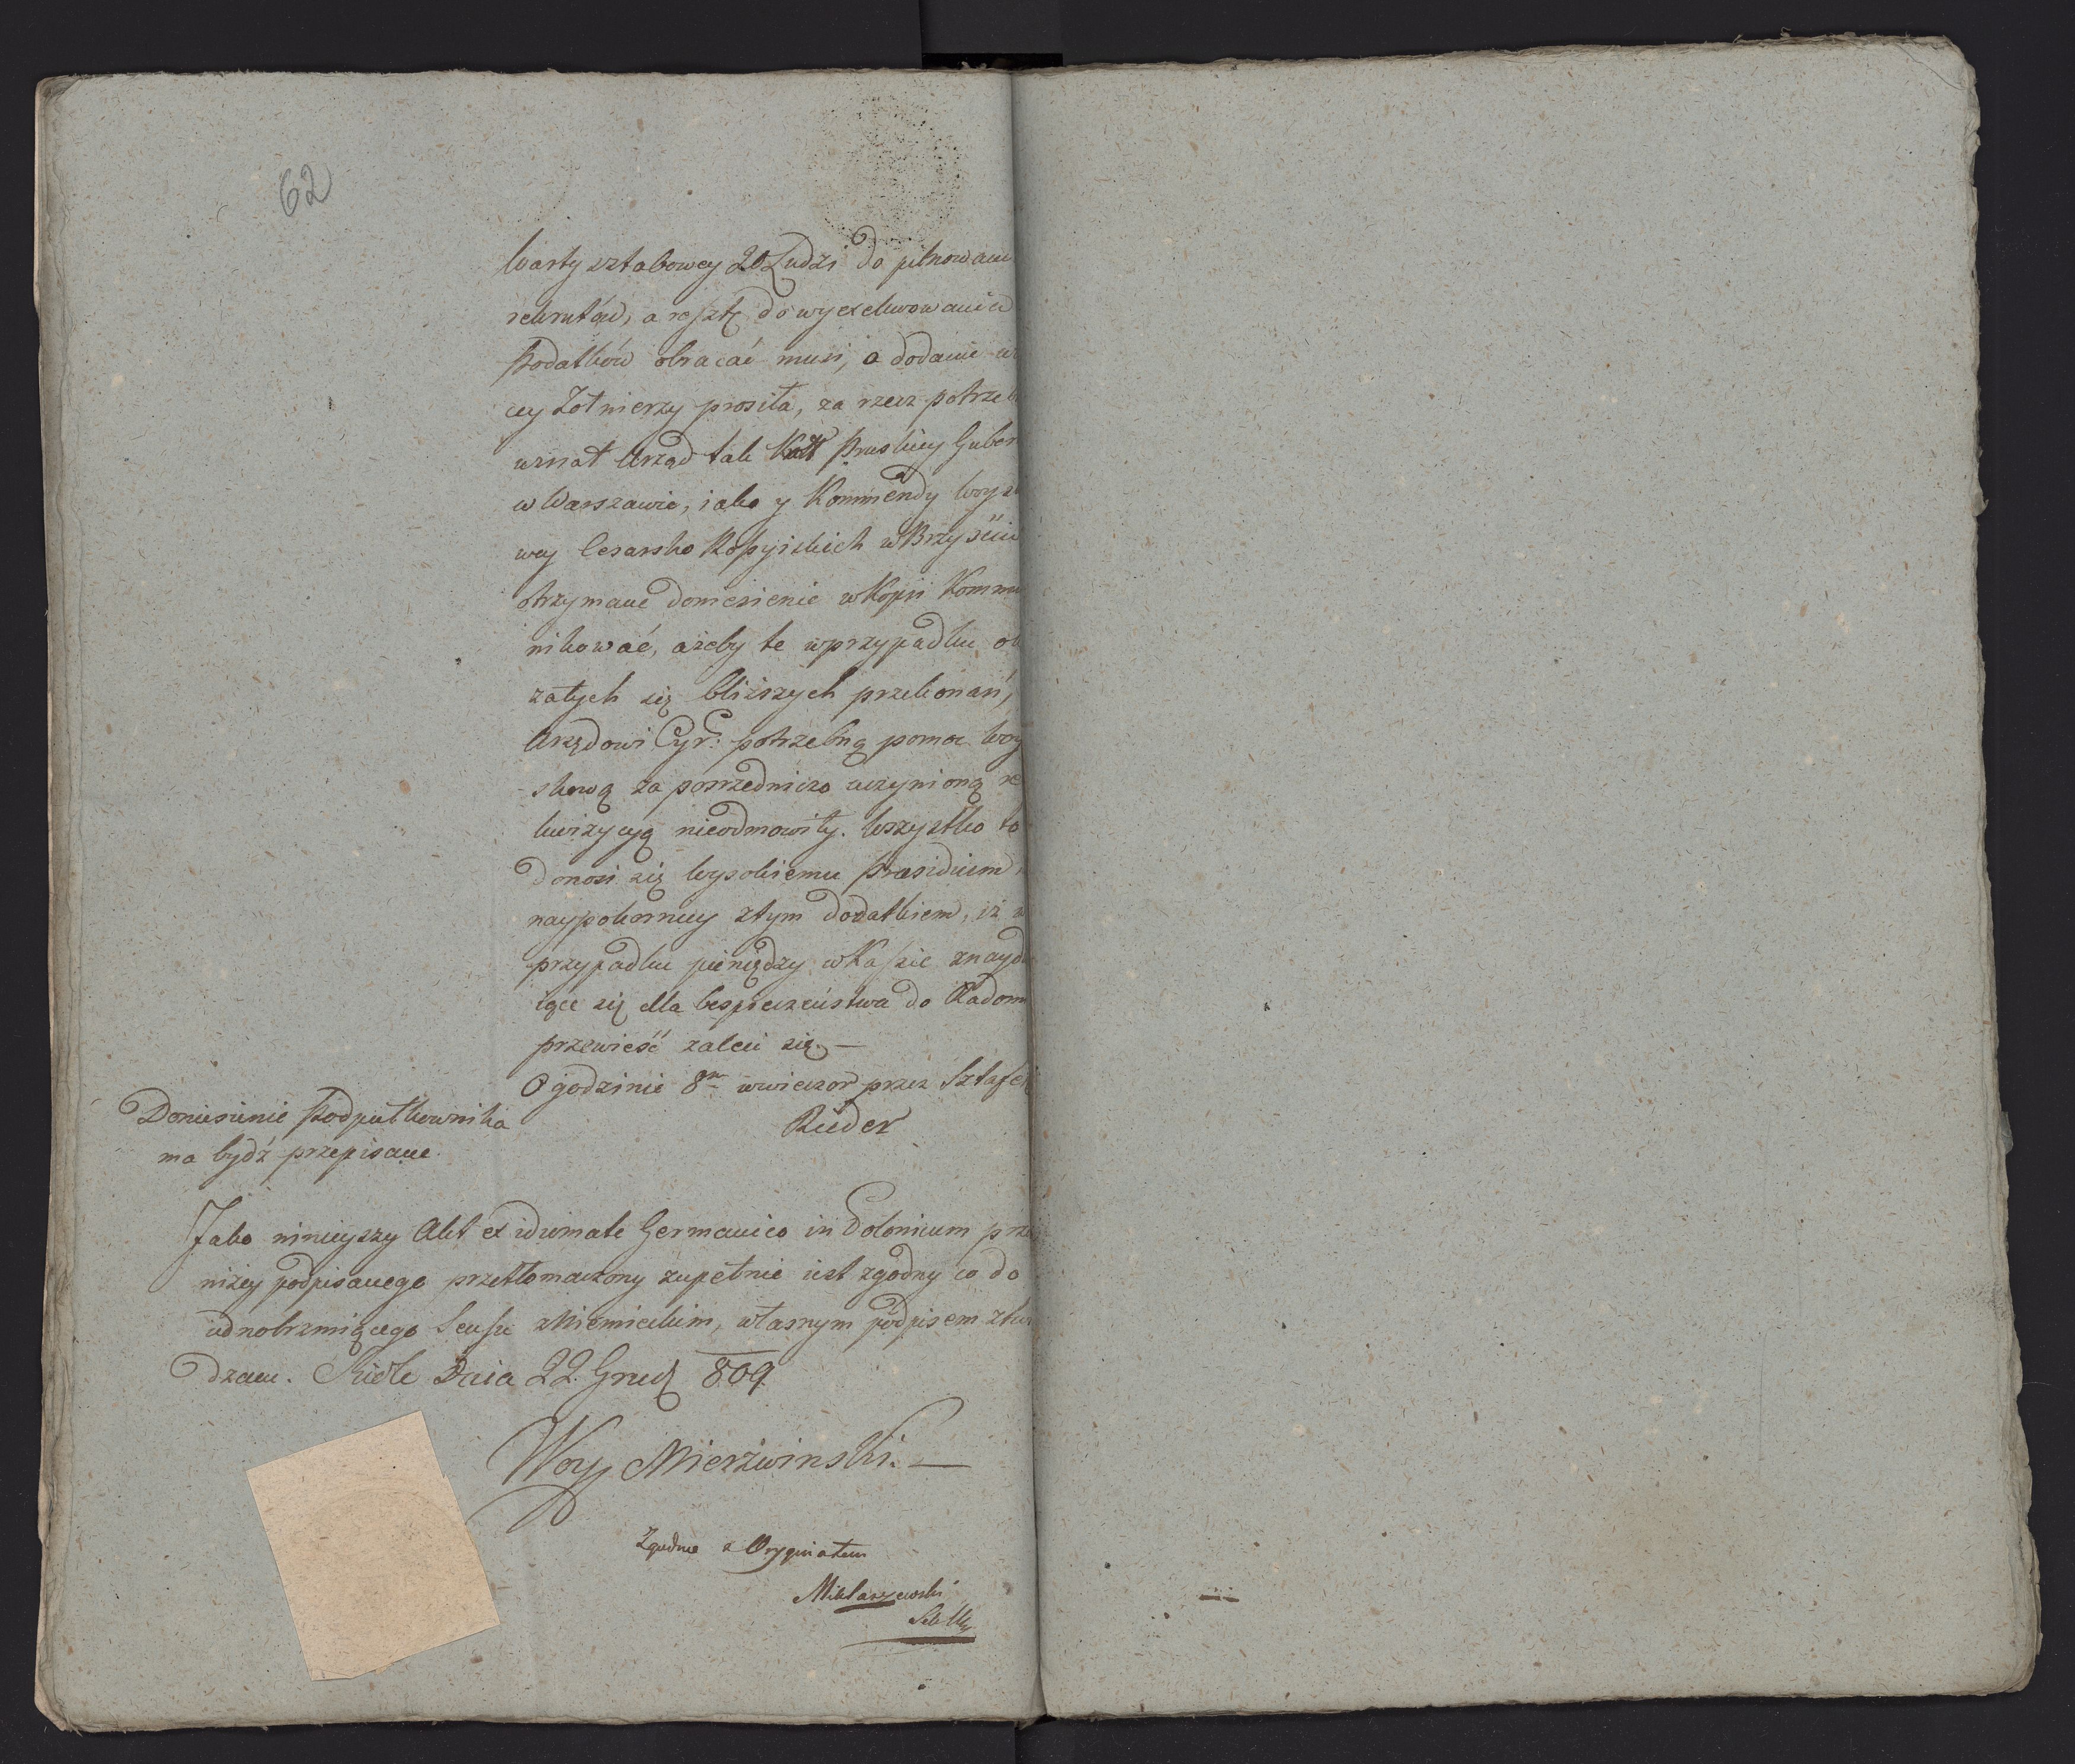 62
Warty sztabowey 20 Ludzi do pilnowani
rekrutów, a resztę do wyexekwowania
Podatków obracać musi, a dodanie
cey Żołnierzy prosiła, za rzecz potrzeb
uznał Urząd tak Pruskiey Guber
w Warszawie, iako y Kommendy Woys
wey Cesarsko Rossyiskich w Brzyściu
otrzymane doniesienie w Kopii Kommu
nikować, ażeby te w przypadku
załych się bliższych przekonań,
Urzędowi Cyr: potrzebną pomoc Woy
skową za poprzedniczo uczynioną re
kwizycyą nieodmowiły. Wszystko to
donosi się Wysokiemu Praesidium
naypokorniey z tym dodatkiem, iż w
przypadku pieniędzy w Kassie znaydu
iące się dla bespieczeństwa do Radom
przewieść zaleci się. —
O godzinie 8ey wwieczor przez Sztafe
Rieder
Doniesienie Podpułkownika
ma bydź przepisane.
Jako ninieyszy Akt ex vidimate Germanico in Polonicum prze
niżey podpisanego przetłomaczony zupełnie iest zgodny co do
iednobrzmiącego Sensu z Niemieckim, własnym podpisem ztwi
dzam. Dnia 22. Grud 809
Woy Mierzwinski. —
Zgodno z Oryginałem
Miklaszewski